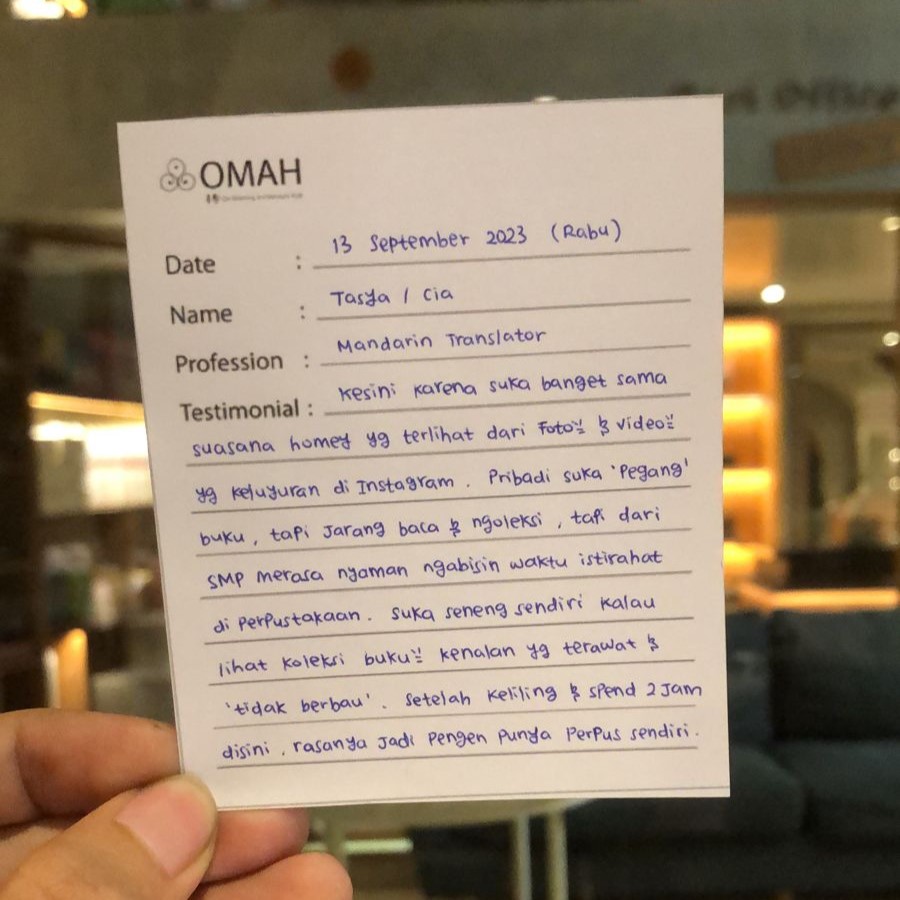 OMAH
Date : 13 September 2023 (Rabu)
Name : Tasya / Cia
Profession : Mandarin Translator
Testimonial : kesini karena suka banget sama
suasana homey yg terlihat dari Foto² & video²
yg keluyuran di Instagram. Pribadi suka 'pegang'
buku, tapi jarang baca & ngoleksi, tapi dari
SMP merasa nyaman ngabisin waktu istirahat
di perpustakaan. suka seneng sendiri kalau
lihat koleksi buku² kenalan yg terawat &
'tidak berbau'. setelah keliling & spend 2 Jam
disini, rasanya jadi pengen punya perpus sendiri.